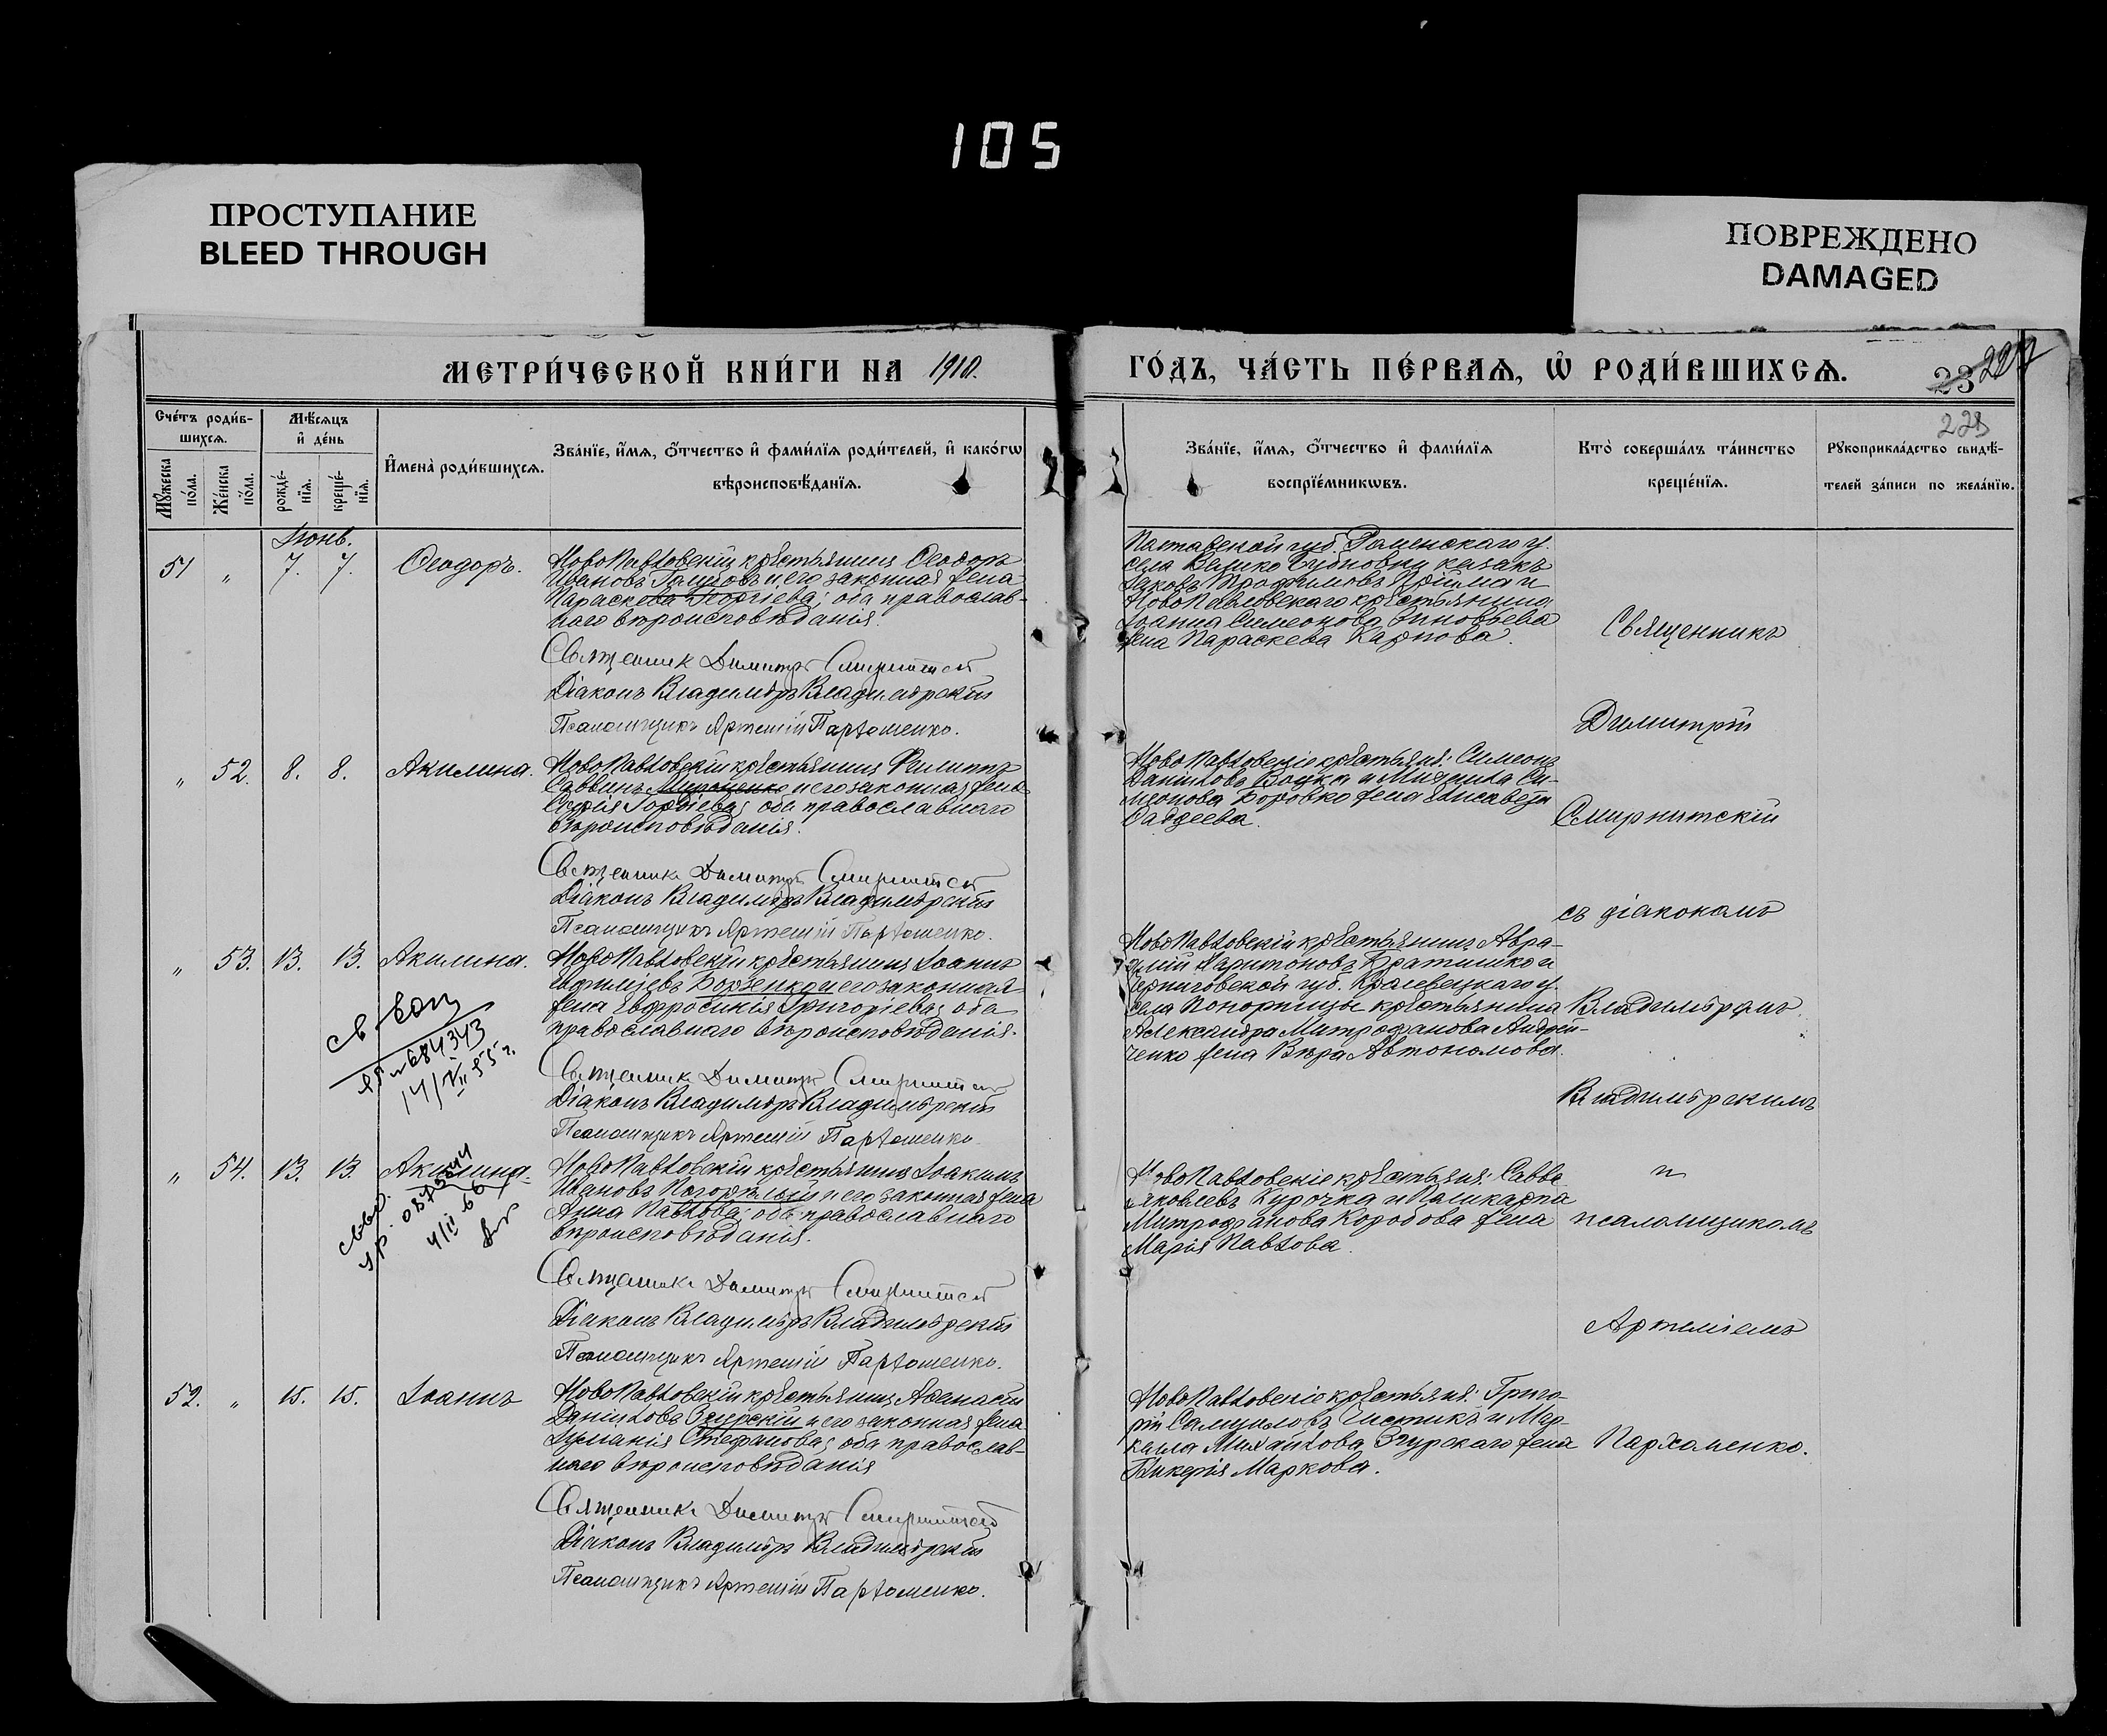 105
ПРОСТУПАНИЕ
BLEED THROUGH
ПОВРЕЖДЕНО
DAMAGED
МЕТРИ́ЧЕСКОЙ КНИ́ГИ НА 1910.
ГО́ДЪ, ЧА́СТЬ ПЕ́РВАѦ, Ѡ РОДИ́ВШИХСѦ.
23
Сче́тъ роди́в-
шихсѧ.
Мѣ́сѧцъ
и де́нь
Мꙋ́жеска по́ла.
Же́нска по́ла.
рожде́-нїѧ.
креще́-нїѧ.
Имена̀ роди́вшихсѧ.
Зва́нїе, и́мѧ, о́тчество и фами́лїѧ роди́телей, и како́гѡ
вѣроисповѣ́данїѧ.
Зва́нїе, и́мѧ, о́тчество и фами́лїѧ
воспрїе́мникѡвъ.
Кто̀ соверша́лъ та́инство
креще́нїѧ.
Рꙋкоприкла́дство свидѣ́-
телей за́писи по жела́нїю.
Іюнь.
51 „ 7. 7. Ѳеодоръ.
Новопавловскій крестьянинъ Ѳеодоръ
Ивановъ и его законная жена
Параскева Георгіева; оба православ-
наго вѣроисповѣданія.
Священникъ Димитрій Смирнитскій
Діаконъ Владиміръ Владимірскій
Псаломщикъ Артемій Пархоменко.
Полтавской губ. у.
села казакъ
Яковъ Трофимовъ Пріима и
Новопавловскаго крестьянина
Іоанна Симеонова Зиновьева
жена Параскева Карпова.
Священникъ
Димитрій
„ 52. 8. 8. Акилина.
Новопавловскій крестьянинъ Филиппъ
Саввинъ и его законная жена
Софія Гордіева; оба православнаго
вѣроисповѣданія.
Священникъ Димитрій Смирнитскій
Діаконъ Владиміръ Владимірскій
Псаломщикъ Артемій Пархоменко.
Новопавловскіе крестьяне: Симеонъ
Даниловъ и Михаила Си-
меонова Боровко жена Елисавета
Фаддеева.
Смирнитскій
съ діакономъ
„ 53. 13. 13. Акилина.
Новопавловскій крестьянинъ Іоаннъ
Евфиміевъ Борзенко и его законная
жена Евфросинія Григоріева; оба
православнаго вѣроисповѣданія.
Священникъ Димитрій Смирнитскій
Діаконъ Владиміръ Владимірскій
Псаломщикъ Артемій Пархоменко.
684343
14/VII 55 г.
Новопавловскій крестьянинъ Авра-
амій Харитоновъ Братишко и
Черниговской губ. Кролевецкаго у.
села Понорницы крестьянина
Александра Митрофанова Андрей-
ченко жена Вѣра Автономова.
Владиміромъ
Владимірскимъ
„ 54. 13. 13. Акилина.
Новопавловскій крестьянинъ Іоакимъ
Ивановъ Погорѣлый и его законная жена
Анна Павлова; оба православнаго
вѣроисповѣданія.
Священникъ Димитрій Смирнитскій
Діаконъ Владиміръ Владимірскій
Псаломщикъ Артемій Пархоменко.
4/II 66
Новопавловскіе крестьяне: Савва
Яковлевъ Курочка и Поликарпа
Митрофанова Коробова жена
Марія Павлова.
и
псаломщикомъ
Артеміемъ
52. „ 15. 15. Іоаннъ
Новопавловскій крестьянинъ Аѳанасій
Даніиловъ Згурскій и его законная жена
Іуліанія Стефанова; оба православ-
наго вѣроисповѣданія
Священникъ Димитрій Смирнитскій
Діаконъ Владиміръ Владимірскій
Псаломщикъ Артемій Пархоменко.
Новопавловскіе крестьяне: Григо-
рій Самуиловъ и Мар-
келла Михайлова Згурскаго жена
Гликерія Маркова.
Пархоменко.